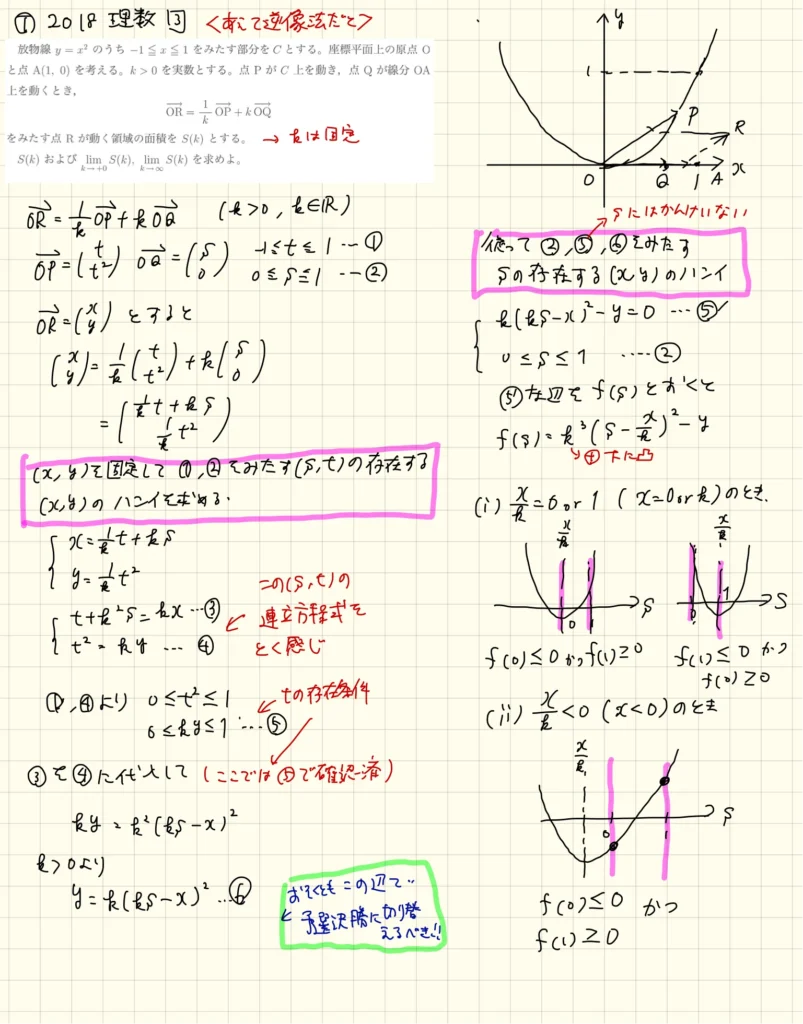 ① 2018 理数 ③ <あえて逆像法だと>
放物線 y = x² のうち −1 ≦ x ≦ 1 をみたす部分を C とする。座標平面上の原点 O
と点 A(1, 0) を考える。k > 0 を実数とする。点 P が C 上を動き，点 Q が線分 OA
上を動くとき，
OR = 1/k OP + k OQ
をみたす点 R が動く領域の面積を S(k) とする。
→ kは固定
S(k) および lim k→+0 S(k), lim k→∞ S(k) を求めよ。
OR = 1/k OP + k OQ (k>0, k∈ℝ)
OP = (t t²) OQ = (s 0) -1≤t≤1 … ①
0≤s≤1 … ②
OR = (x y) とすると
(x y) = 1/k (t t²) + k (s 0)
= (1/k t + ks 1/k t²)
(x, y)を固定して①,②をみたす(s,t)の存在する
(x,y)のハンイを求める.
x = 1/k t + ks
y = 1/k t²
t + k²s = kx … ③
t² = ky … ④
← この(s,t)の
連立方程式を
とく感じ
①,④より 0≤t²≤1
0≤ky≤1 … ⑤
← tの存在条件
③を④に代入して (ここでは⑤で確認済)
ky = k²(ks-x)²
k>0より
y = k(ks-x)² … ⑥
おそくともこの辺で..
← 予選決勝に切り替
えるべき!!
y
1
P
R
O
Q
1
A
x
sにはかんけいない
従って②,⑤,⑥をみたす
sの存在する(x,y)のハンイ
k(ks-x)²-y=0 … ⑤'
0≤s≤1 … ②
⑤'左辺をf(s)とおくと
f(s)=k³(s-x/k)²-y
→ ⊕下に凸
(i) x/k=0 or 1 (x=0 or k)のとき.
x/k
0
s
x/k
0
1
s
f(0)≤0かつf(1)≥0
f(1)≤0かつ
f(0)≥0
(ii) x/k<0 (x<0)のとき
x/k
0
1
s
f(0)≤0 かつ
f(1)≥0